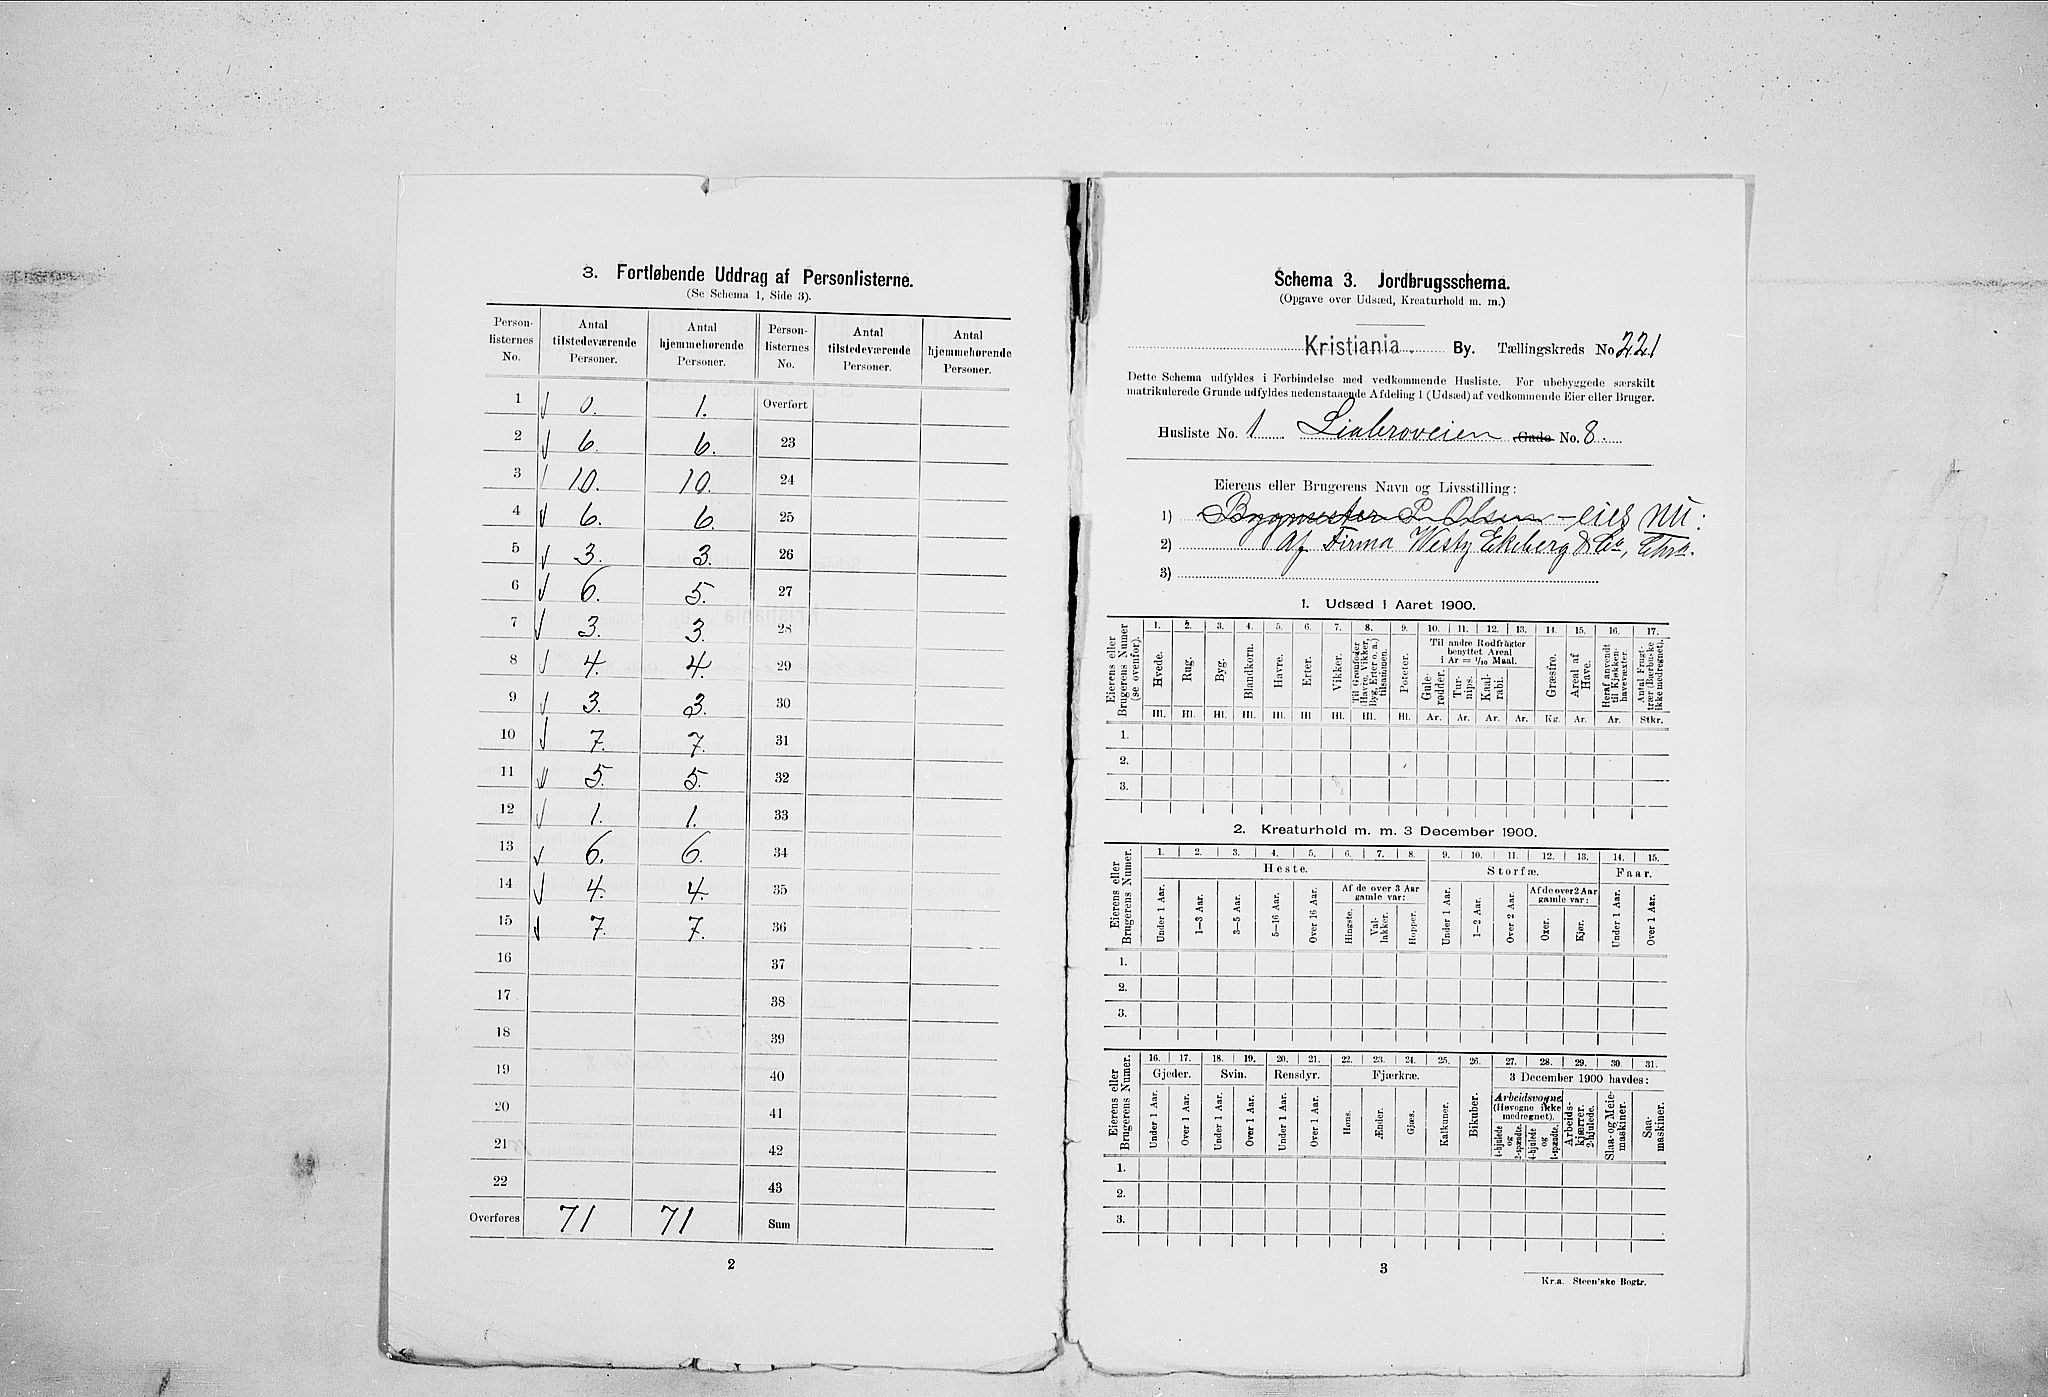 3. Fortløbende Uddrag af Personlisterne.
(Se Schema 1, Side 3).
Person-listernes No. | Antal tilstedeværende Personer. | Antal hjemmehørende Personer. | Person-listernes No. | Antal tilstedeværende Personer. | Antal hjemmehørende Personer.
1 0. 1. Overført
2 6. 6. 23
3 10. 10. 24
4 6. 6. 25
5 3. 3. 26
6 6. 5. 27
7 3. 3. 28
8 4. 4. 29
9 3. 3. 30
10 7. 7. 31
11 5. 5. 32
12 1. 1. 33
13 6. 6. 34
14 4. 4. 35
15 7. 7. 36
16 37
17 38
18 39
19 40
20 41
21 42
22 43
Overføres 71 71 Sum
2
Schema 3. Jordbrugsschema.
(Opgave over Udsæd, Kreaturhold m. m.)
Kristiania. By. Tællingskreds No 221
Dette Schema udfyldes i Forbindelse med vedkommende Husliste. For ubebyggede særskilt
matrikulerede Grunde udfyldes nedenstaaende Afdeling 1 (Udsæd) af vedkommende Eier eller Bruger.
Husliste No. 1 Liabroveien Gade No. 8.
Eierens eller Brugerens Navn og Livsstilling:
1) Bygmester P. Olsen - eies nu:
2) Af Firma Westy Ekeberg & Co, Chra.
3)
1. Udsæd i Aaret 1900.
Eierens eller Brugerens Numer (se ovenfor).
1. 2. 3. 4. 5. 6. 7. 8. 9. 10. 11. 12. 13. 14. 15. 16. 17.
Hvede. Rug. Byg. Blandkorn. Havre. Erter. Vikker. Til Grønfoder (Havre, Vikker, Byg, Erter o. a.) tilsammen. Poteter.
Til andre Rodfrugter benyttet Areal i Ar = 1/10 Maal.
Gule-rødder. Tur-nips. Kaal-rabi. Græsfrø. Areal af Have. Heraf anvendt til Kjøkken-havevæxter. Antal Frugt-trær (Bærbuske ikke medregnet).
Hl. Hl. Hl. Hl. Hl. Hl. Hl. Hl. Hl. Ar. Ar. Ar. Ar. Kg. Ar. Ar. Stkr.
1.
2.
3.
2. Kreaturhold m. m. 3 December 1900.
Eierens eller Brugerens Numer.
1. 2. 3. 4. 5. 6. 7. 8. 9. 10. 11. 12. 13. 14. 15.
Heste. Storfæ. Faar.
Under 1 Aar. 1—3 Aar. 3—5 Aar. 5—16 Aar. Over 16 Aar. Af de over 3 Aar gamle var: Hingste. Val-lakker. Hopper. Under 1 Aar. 1—2 Aar. Over 2 Aar. Af de over 2 Aar gamle var: Oxer. Kjør. Under 1 Aar. Over 1 Aar.
1.
2.
3.
Eierens eller Brugerens Numer.
16. 17. 18. 19. 20. 21. 22. 23. 24. 25. 26. 27. 28. 29. 30. 31.
Gjeder. Svin. Rensdyr. Fjærkræ. Bikuber. 3 December 1900 havdes:
Under 1 Aar. Over 1 Aar. Under 1 Aar. Over 1 Aar. Under 1 Aar. Over 1 Aar. Høns. Ænder. Gjæs. Kalkuner. Arbeidsvogne (Høvogne ikke medregnet). 4-hjulede og 2-spændte. 4-hjulede og 1-spændte. Arbeids-kjærrer, 2-hjulede. Slaa- og Meie-maskiner. Saa-maskiner.
1.
2.
3.
3
Kr.a. Steen'ske Bogtr.